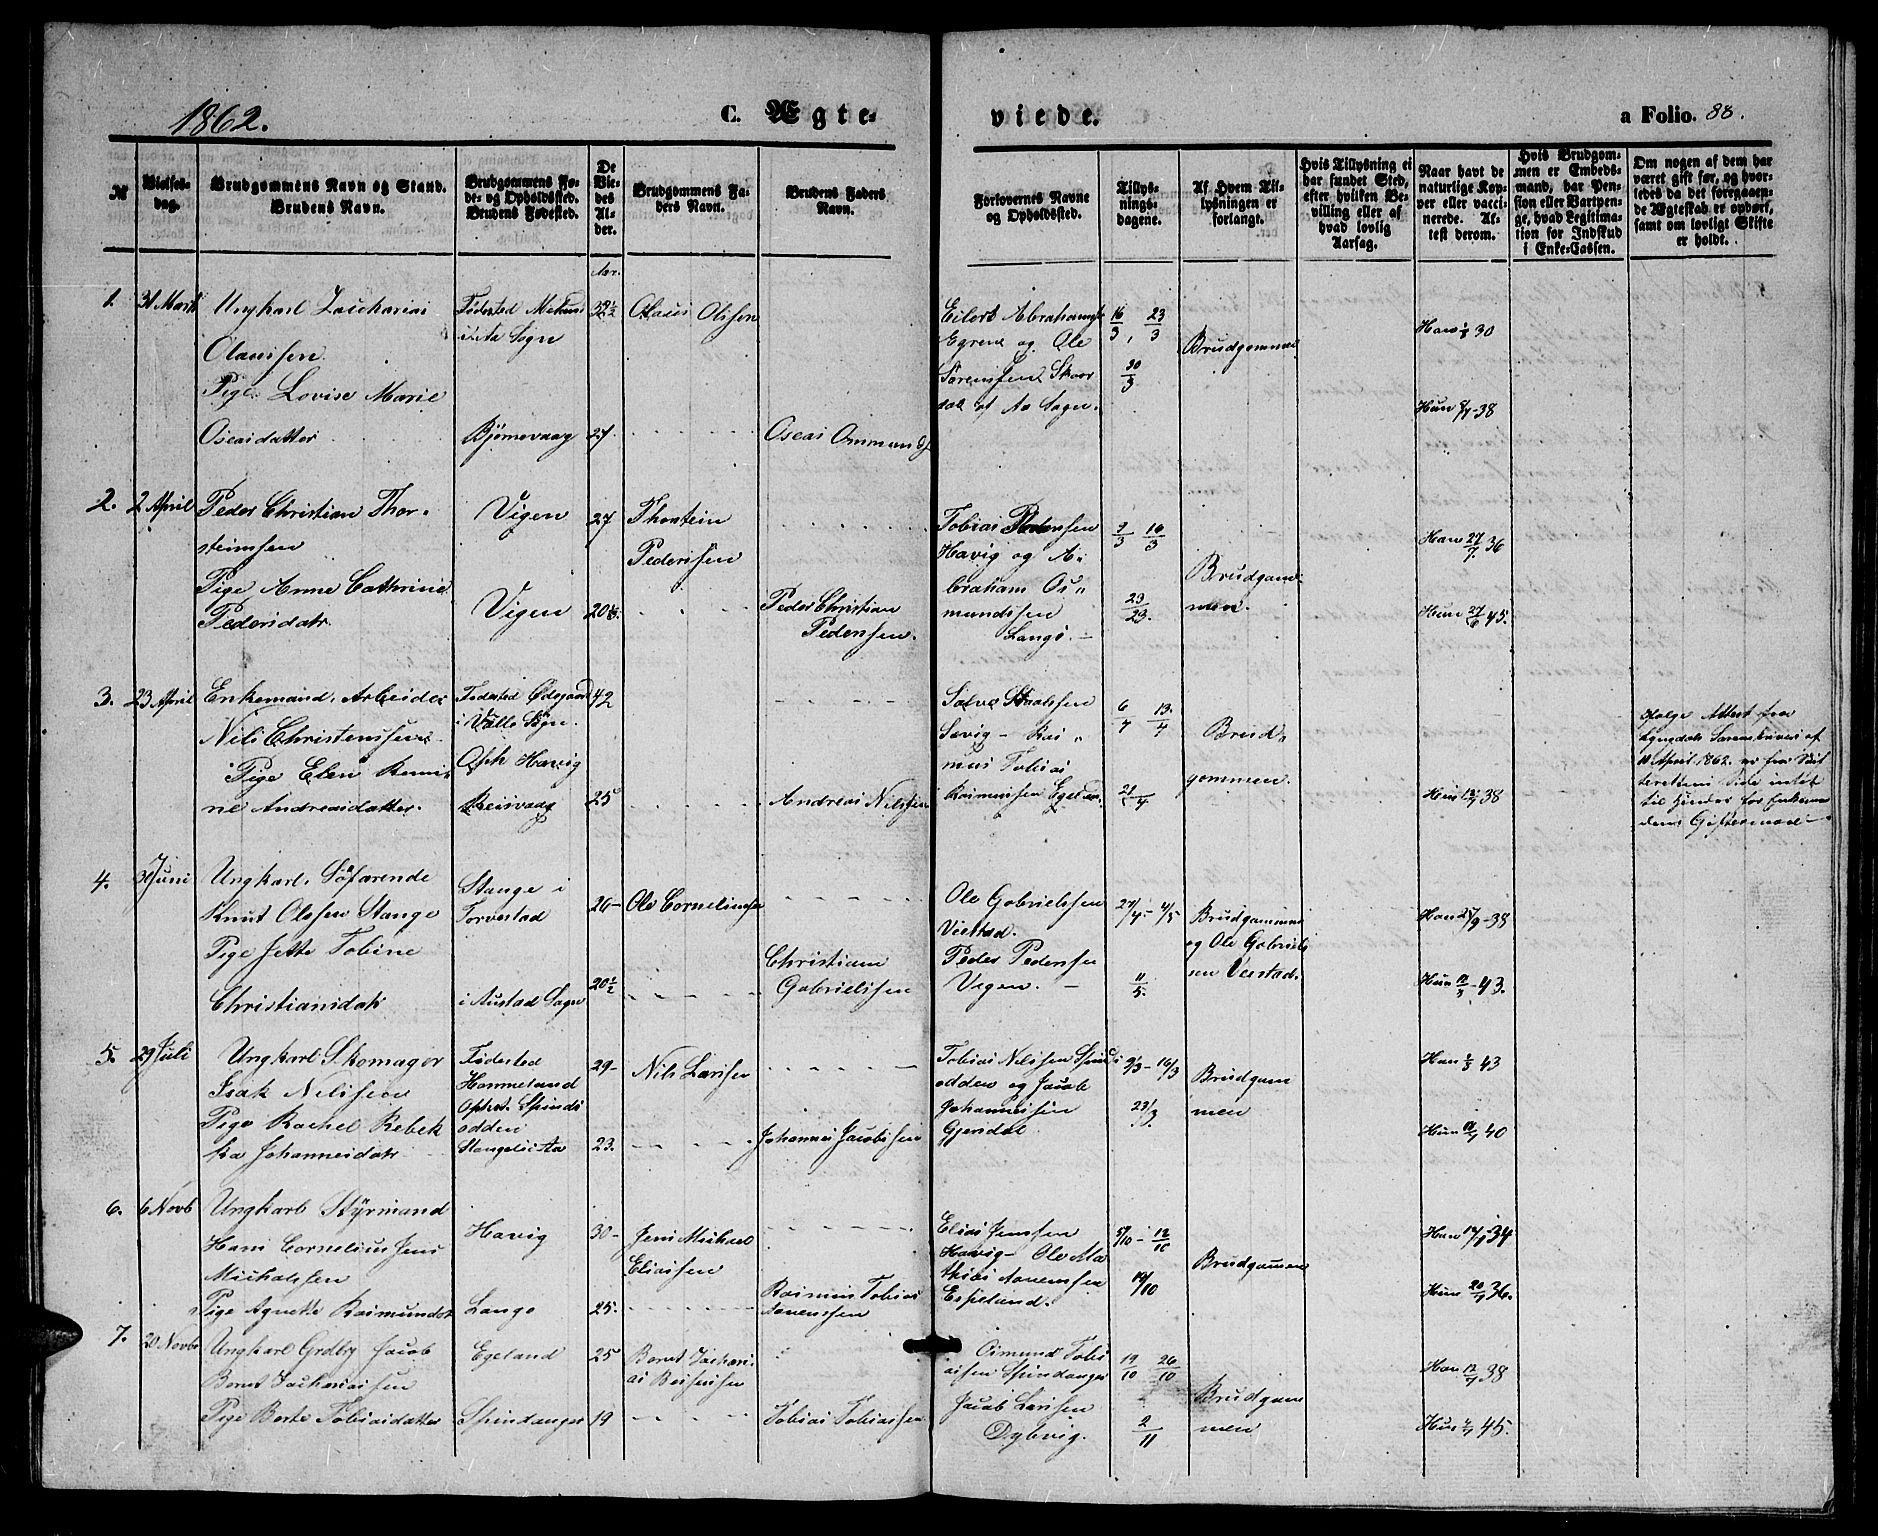 1862. C. Ægte-
viede. a Folio. 88.
№
Vielses-
dag.
Brudgommens Navn og Stand.
Brudens Navn.
Brudgommens Fø-
de- og Opholdssted.
Brudens Fødested.
De
Vie-
des
Al-
der.
Brudgommens Fa-
ders Navn.
Brudens Faders
Navn.
Forlovernes Navne
og Opholdssted.
Tillys-
nings-
dagene.
Af Hvem Til-
lysningen er
forlangt.
Hvis Tillysning ei
har fundet Sted,
efter hvilken Be-
villing eller af
hvad lovlig
Aarsag.
Naar havt de
naturlige Kop-
per eller vacci-
nerede. At-
test derom.
Hvis Brudgom-
men er Embeds-
mand, har Pen-
sion eller Vartpen-
ge, hvad Legitima-
tion for Indskud
i Enke-Cassen.
Om nogen af dem har
været gift før, og hvor-
ledes da det foregaaen-
de Ægteskab er ophørt,
samt om lovligt Skifte
er holdt.
Aar.
1. 31 Marts Ungkarl Zacharias
Olaussen
Pige Lovise Marie
Oseasdatter
Fødested
i Aa Sogn
Bjørnevaag
32½
27
Olaus Olssen
Oseas Ommunds
Eilert Abrahams
Egrene og Ole
Sørenssen Skaar
dal af Aa Sogn.
16/3, 23/3
30/3
Brudgommen
Han 30
Hun 8/7-38
2. 2 April Peder Christian Thor-
steinsen
Pige Anne Cathrine
Pedersdatr
Vigen
Vigen
27
20
Thorstein
Pederssen
Peder Christian
Pederssen.
Tobias Pederssen
Havig og A-
braham Os-
mundssen
Langø. -
9/3 16/3
23/23.
Brudgom-
men.
Han 27/7. 36
Hun 27/6 45.
3. 23 April Enkemand, Arbeider
Nils Christenssen
Pige Elen
ne Andreasdatter.
Fødested Ødegaard
i Valle Sogn.
Oph Havig
Reisvaag
42
25
Andreas Nilssen
Salve
Sævig - Ras-
mus Tobias
Rasmussen Egeland.
6/4 13/4
21/4
Brud-
gommen.
Hun 38
Ifølge Attest fra
Lyngdals Sorenskriveri af
11 April 1862. er fra Skif
terettens Side intet
til Hinder for Enkema
dens Giftermaal -
4. 30 Juni Ungkarl, Søfarende
Knut Olssen Stange
Pige Jette Tobine
Christiansdatr
Stange i
Torvestad
i Austad Sogn
26-
20½
Ole Corneliussen
Christian
Gabrielssen
Ole Gabrielssen
Viestad.
Peder Pederssen
Vigen. -
27/4- 4/5
11/5.
Brudgommen
og Ole Gabriels
sen Viestad.
Han 25/9-38
Hun 43.
5. 29 Juli Ungkarl Skomager
Isak Nilssen
Pige Rachel Rebek
ka Johannesdatr
Fødested
Hommeland
Ophst. Spinds
odden
Stangelii Aa
29-
23.
Nils Larssen
Johannes Jacobssen
Tobias Nilssen Spinds
odden og Jacob
Johannessen
Gjerdal.
9/3- 16/3
23/3.
Brudgom
men
Han 43
Hun 40
6. 6 Novb Ungkarl Styrmand
Hans Cornelius Jens
Michalssen
Pige Agnette Rasmusdatr
Havig
Langø
30-
25.
Jens Michael
Eliassen
Rasmus Tobias
Aanenssen
Elias Jenssen
Havig - Ole Ma
thias Aanenssen
Espeland.
5/10- 12/10
19/10
Brudgommen
Han 34
Hun 20/7 36.
7. 20 Novb Ungkarl Grdbr Jacob
Bernt Zachariassen
Pige Berte Tobiasdatter
Egeland
Spindanger
25
19
Bernt Zachari-
as
Tobias Tobiassen
Osmund Tobi
assen Spindanger
Jacob Larssen
Dybvig.
19/10 26/10
2/11
Brudgom
men
Han 38
Hun 45.